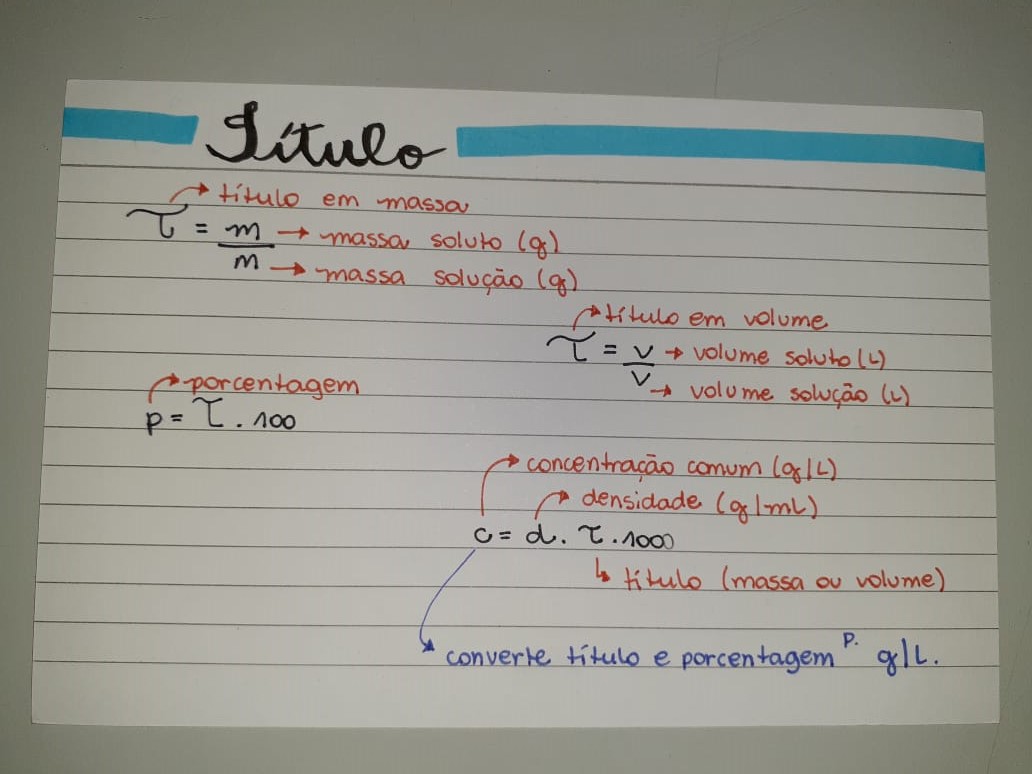 Título
título em massa
τ = m → massa soluto (g)
m → massa solução (g)
título em volume
τ = v → volume soluto (L)
v → volume solução (L)
porcentagem
p = τ . 100
concentração comum (g/L)
densidade (g/mL)
c = d . τ . 1000
título (massa ou volume)
converte título e porcentagem p. g/L.